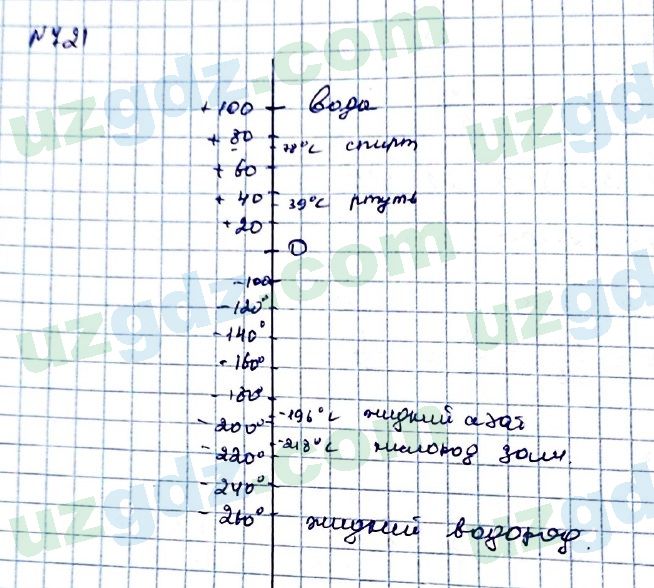 №721
+100 Вода
+80
78°C спирт
+60
+40
39°C ртуть
+20
0
-100
-120°
-140°
-160°
-180°
-196°C жидкий азот
-200°
-218°C
-220°
-240°
-260° жидкий водород.
uzgdz.com
uzgdz.com
uzgdz.com
uzgdz.com
uzgdz.com
uzgdz.com